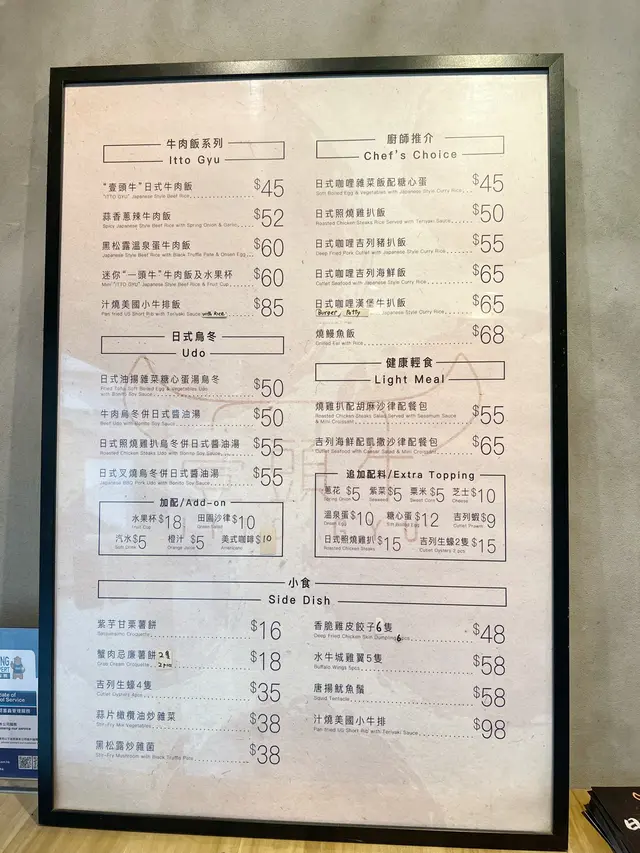 牛肉飯系列
Itto Gyu
"壹頭牛"日式牛肉飯 $45
"ITTO GYU" Japanese Style Beef Rice
蒜香蔥辣牛肉飯 $52
Spicy Japanese Style Beef Rice with Spring Onion & Garlic
黑松露溫泉蛋牛肉飯 $60
Japanese Style Beef Rice with Black Truffle Pate & Onsen Egg
迷你"一頭牛"牛肉飯及水果杯 $60
Mini "ITTO GYU" Japanese Style Beef Rice & Fruit Cup
汁燒美國小牛排飯 $85
Pan fried US Short Rib with Teriyaki Sauce with Rice
日式烏冬
Udo
日式油揚雜菜糖心蛋湯烏冬 $50
Fried Tofu, Soft Boiled Egg & Vegetables Udo
with Bonito Soy Sauce
牛肉烏冬併日式醬油湯 $50
Beef Udo with Bonito Soy Sauce
日式照燒雞扒烏冬併日式醬油湯 $55
Roasted Chicken Steaks Udo with Bonito Soy Sauce
日式叉燒烏冬併日式醬油湯 $55
Japanese BBQ Pork Udo with Bonito Soy Sauce
加配/Add-on
水果杯 $18 田園沙律 $10
Fruit Cup Green Salad
汽水 $5 橙汁 $5 美式咖啡 $10
Soft Drink Orange Juice Americano
廚師推介
Chef's Choice
日式咖哩雜菜飯配糖心蛋 $45
Soft Boiled Egg & Vegetable with Japanese Style Curry Rice
日式照燒雞扒飯 $50
Roasted Chicken Steaks Rice Served with Teriyaki Sauce
日式咖哩吉列豬扒飯 $55
Deep Fried Pork Cutlet with Japanese Style Curry Rice
日式咖哩吉列海鮮飯 $65
Cutlet Seafood with Japanese Style Curry Rice
日式咖哩漢堡牛扒飯 $65
Burger Patty Japanese Style Curry Rice
燒鰻魚飯 $68
Grilled Eel with Rice
健康輕食
Light Meal
燒雞扒配胡麻沙律配餐包 $55
Roasted Chicken Steaks Salad Served with Sesamum Sauce
& Mini Croissant
吉列海鮮配凱撒沙律配餐包 $65
Cutlet Seafood with Caesar Salad & Mini Croissant
追加配料/Extra Topping
蔥花 $5 紫菜 $5 粟米 $5 芝士 $10
Spring Onion Seaweed Sweet Corn Cheese
溫泉蛋 $10 糖心蛋 $12 吉列蝦 $9
Onsen Egg Soft Boiled Egg Cutlet Prawn
日式照燒雞扒 $15 吉列生蠔2隻 $15
Roasted Chicken Steaks Cutlet Oysters 2 pcs
小食
Side Dish
紫芋甘栗薯餅 $16
Croquette
蟹肉忌廉薯餅 2隻 $18
Crab Cream Croquette 2pcs
吉列生蠔4隻 $35
Cutlet Oysters 4pcs
蒜片橄欖油炒雜菜 $38
Stir-Fry Mix Vegetables
黑松露炒雜菌 $38
Stir-Fry Mushroom with Black Truffle Pate
香脆雞皮餃子6隻 $48
Deep Fried Chicken Skin Dumpling 6pcs
水牛城雞翼5隻 $58
Buffalo Wings 5pcs
唐揚魷魚鬚 $58
Squid Tentacle
汁燒美國小牛排 $98
Pan fried US Short Rib with Teriyaki Sauce